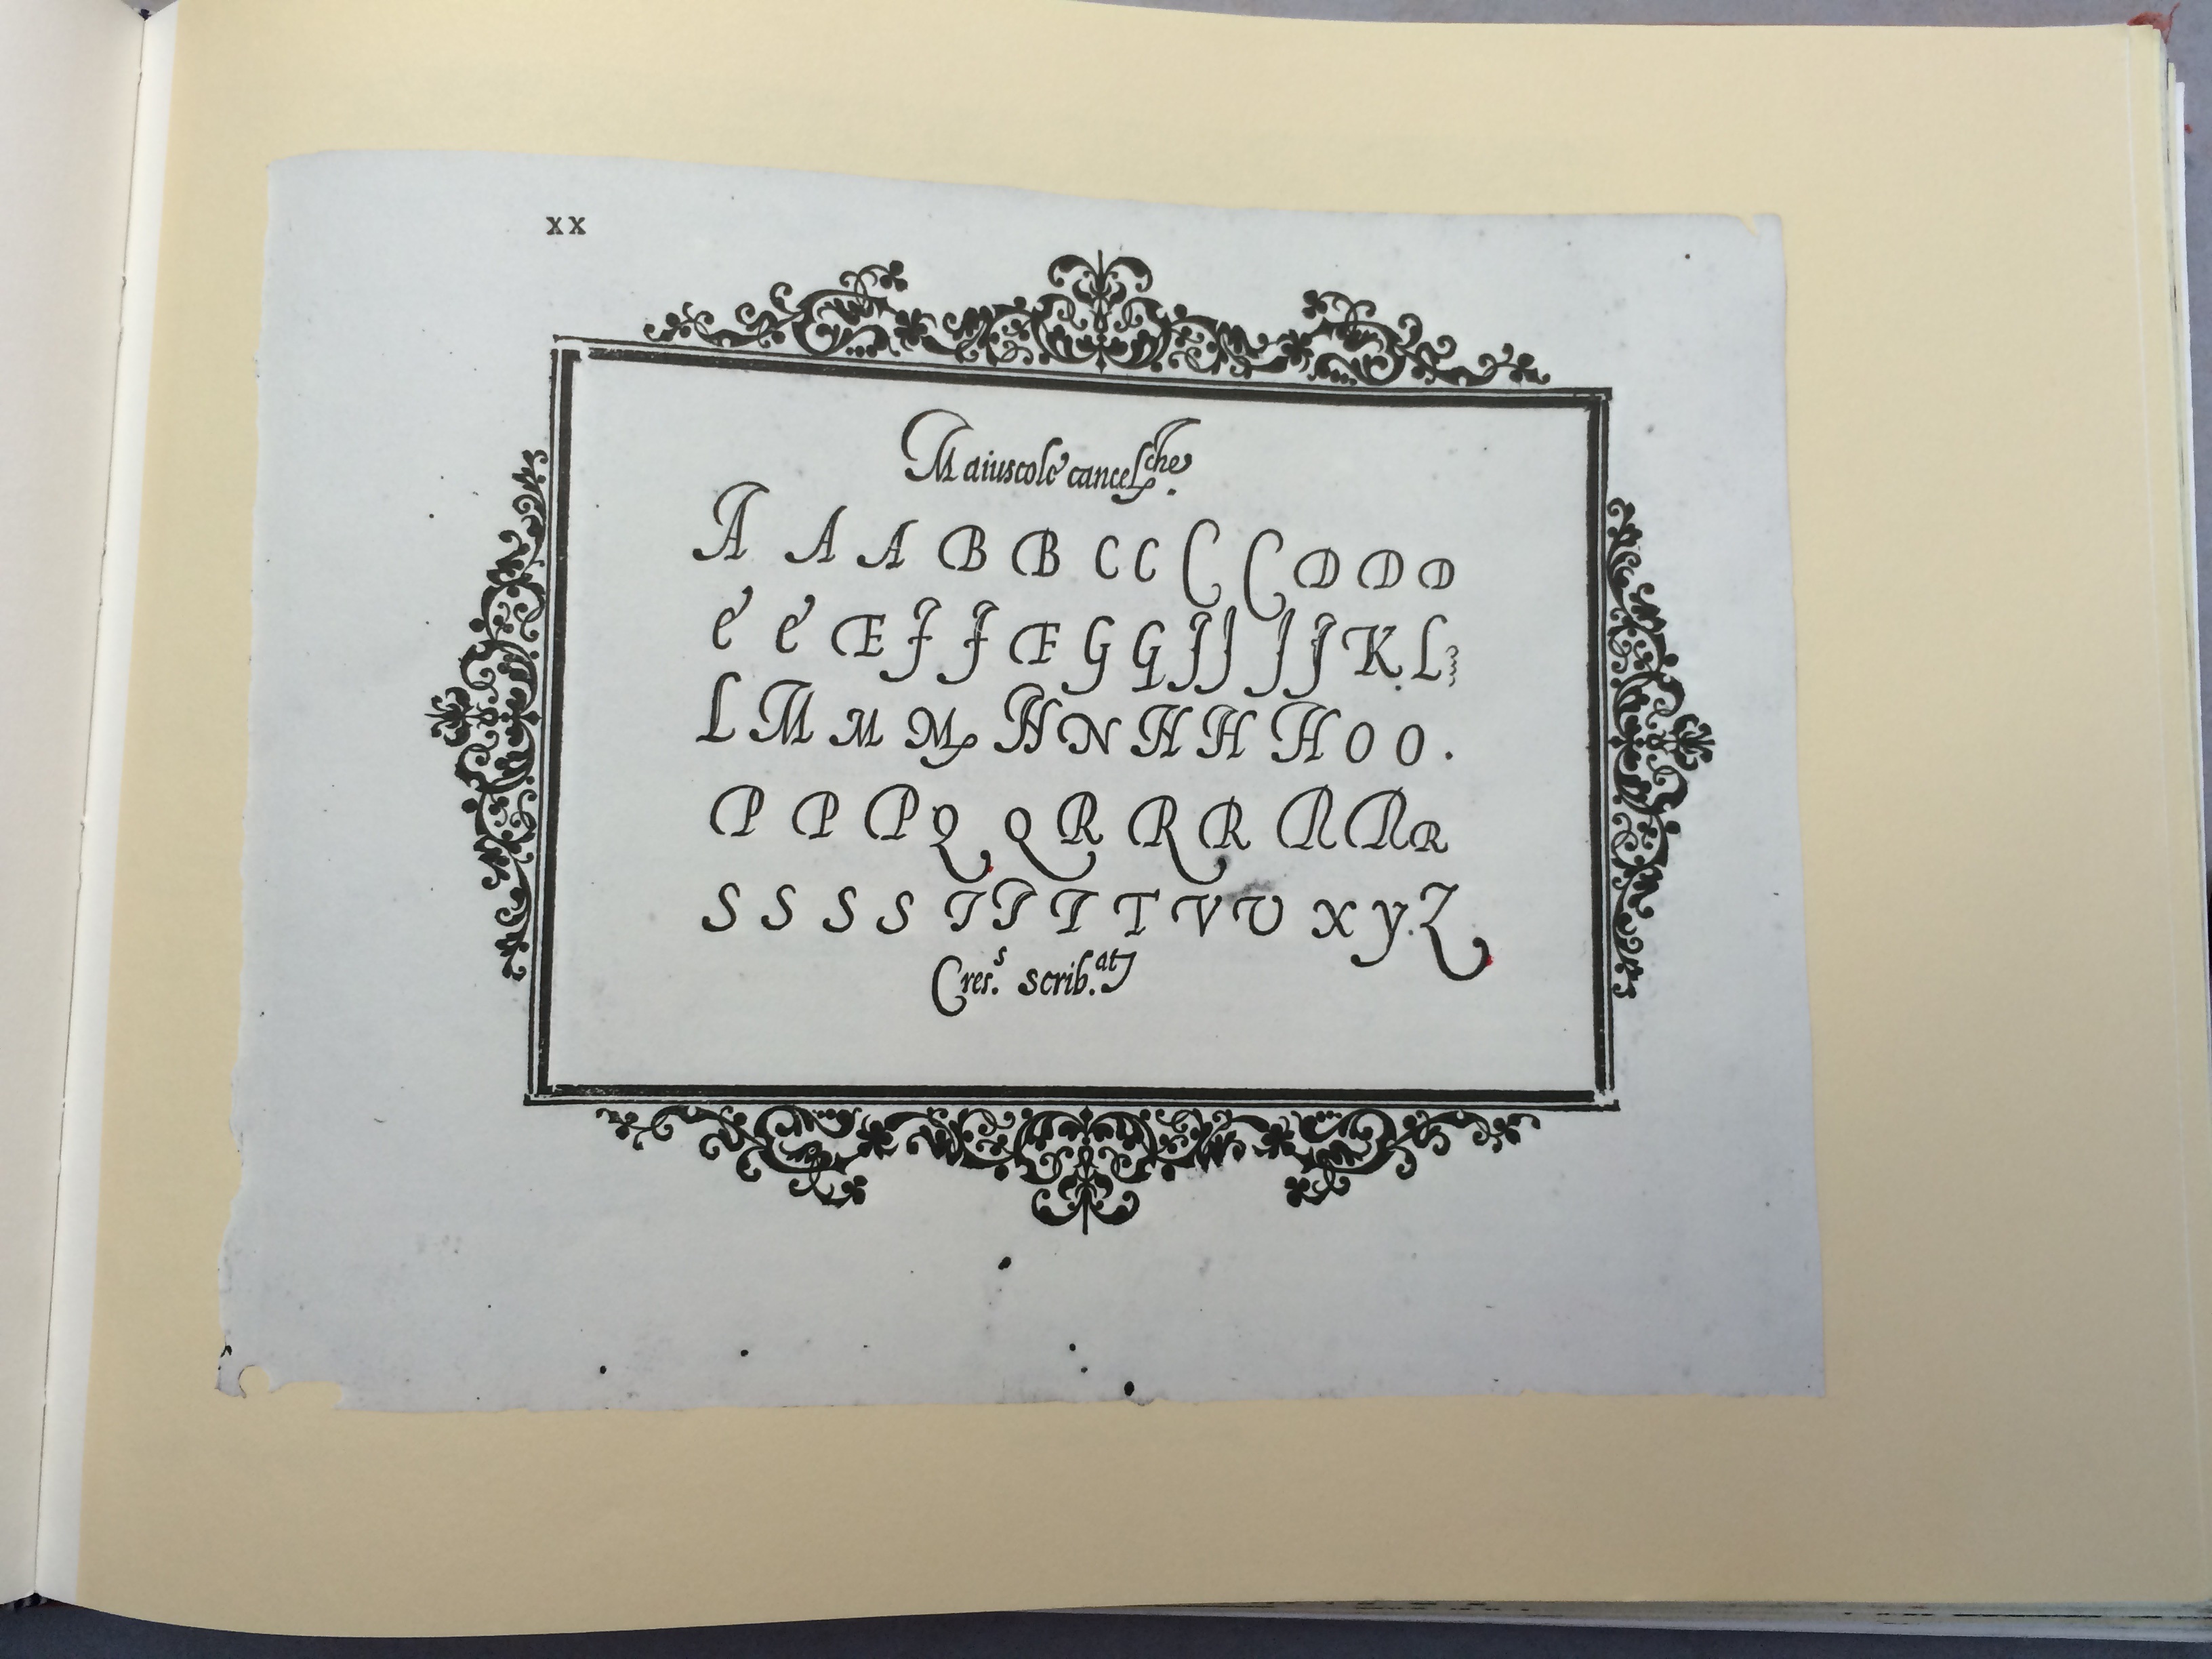 xx
Maiuscole cancel.che
A A A B B C C C C D D D
E E E F F F G G J J J J K L
L M M M N N H H H O O .
P P P Q Q R R R R R R
S S S S T T T T V V X Y. Z
Cres.s scrib.at